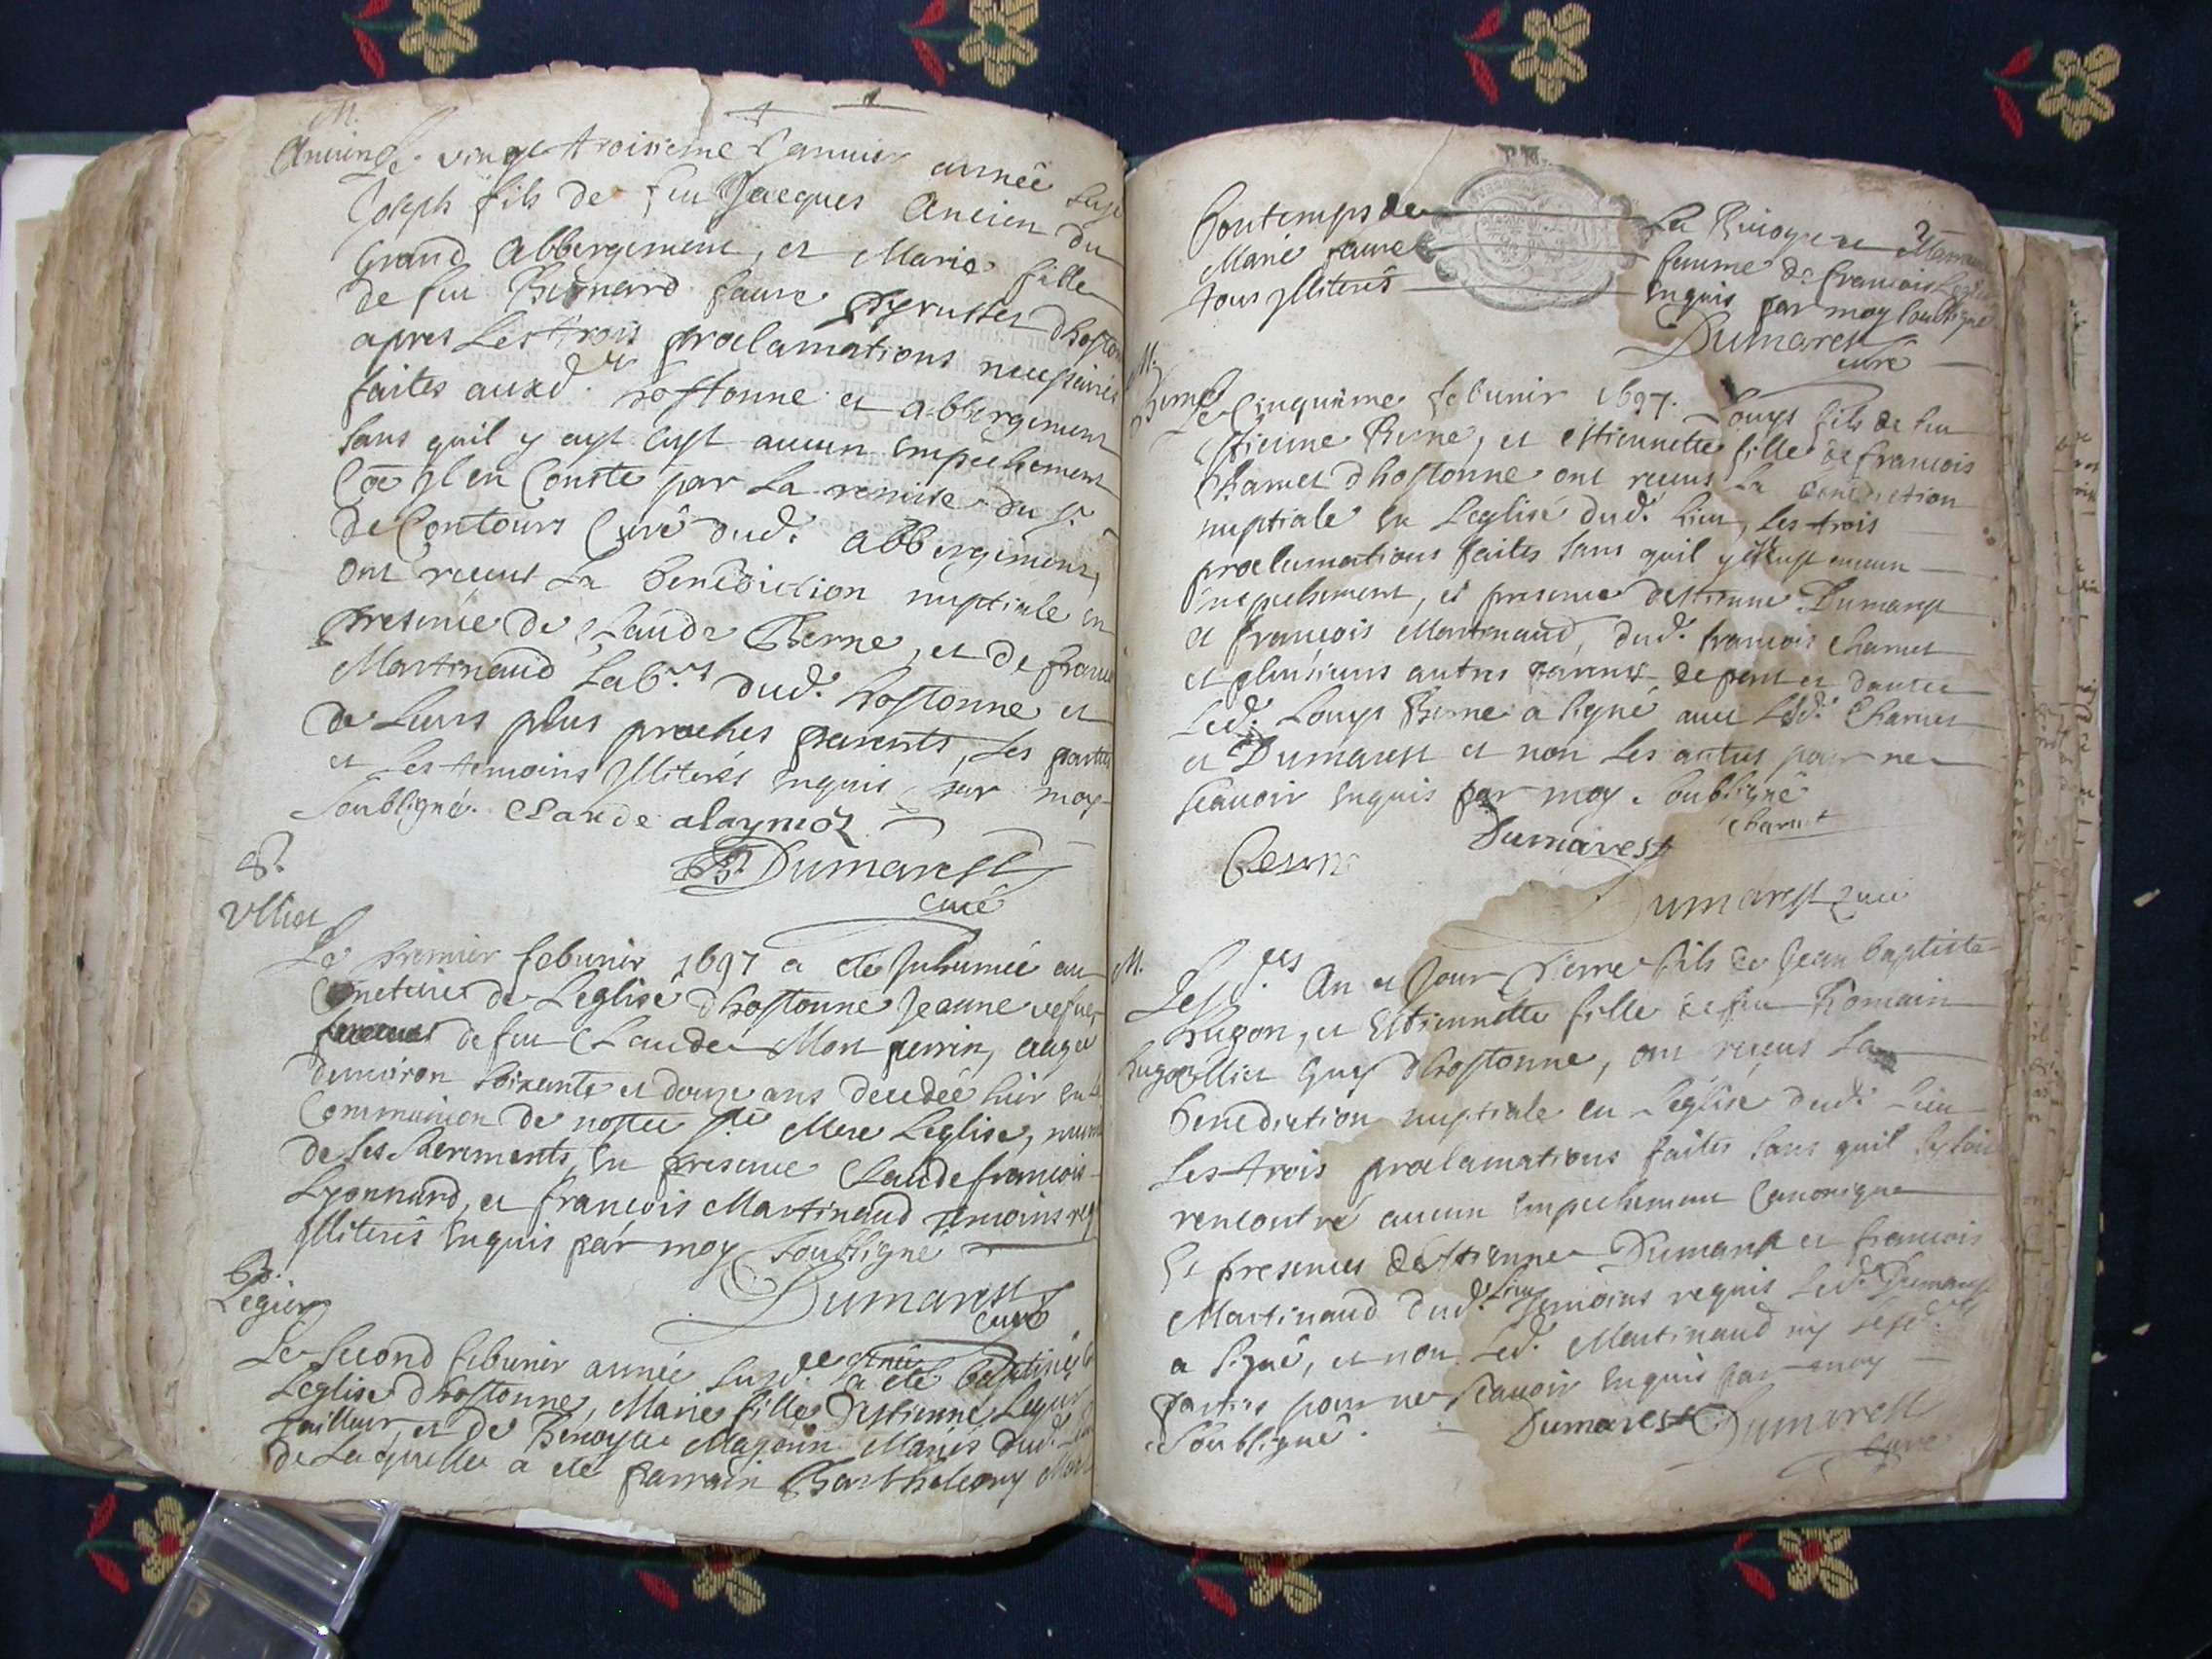 M.
Ancien Le vingt troisieme Janvier année susd
Joseph fils de feu Jacques Ancien du
Grand Abbergement, et Marie fille
de feu Bernard faure dhostonne
apres Les trois proclamations necessaires
faites auxd. hostonne et abbergement
sans quil y ayt eust aucun empechement
Coe Jl en Conste par La remise du Sr.
de Contours Curé dud. abbergement,
ont receut La benediction nuptiale en
presence de Claude Berne, et de francois
Martinaud Labrs. dud. hostonne et
de Leurs plus proches parents, Les parties
et Les temoins Jlliterés Enquis par moy
Soubsigné. Claude alaymoz
Dumarest
curé
S.
Vlliet
Le premier febvrier 1697 a eté Jnhumée au
Cimetiere de Leglise dhostonne Jeanne vefve
de feu Claude Mon perrin, agée
denviron soixante et douze ans decedée hier en la
Communion de nostre ste Mere Leglise, munie
de ses sacrements, En presence Claude francois
Lyonnard, et francois Martinaud temoins req
Jlliterés Enquis par moy soubsigné
Dumarest
curé
B.
Legier
Le second febvrier année susd. a eté baptisée
Leglise dhostonne, Marie fille destienne Legier
tailleur, et de Benoyte Mariés dud.
de Laquelle a eté parrain Barthelemy
bontemps de La Benoyte
Marie faure femme de francois
tous Jlliterés Enquis par moy soubsigné
Dumarest
curé
M.
Berne
Le Cinquieme febvrier 1697. Louys fils de feu
Estienne Berne, et Estiennette fille de francois
Charnet dhostonne ont receus La benediction
nuptiale En Leglise dud. Lieu, Les trois
proclamations faites sans quil y eust aucun
empechement, et presence destienne Dumarest
et francois Martinaud, dud. francois Charnet
et plusieurs autres parents de part et dautre
Led. Louys Berne a signé avec Lesd. Charnet
et Dumarest et non Les autres pour ne
scavoir Enquis par moy Soubsigné
Dumarest Charnet
Dumarest curé
M.
Lesd. An et Jour Pierre fils de Jean baptiste
hugon, et Estiennette fille de feu Romain
hugon Vlliet Guy dhostonne, ont receus La
benediction nuptiale en Leglise dud. Lieu
Les trois proclamations faites sans quil sy soit
rencontré aucun Empechement Canonique
Et presences destienne Dumarest et francois
Martinaud dud. Lieu temoins requis Led. Dumarest
a signé, et non Led. Martinaud ny Lesd.
parties pour ne scavoir Enquis par moy
Soubsigné. Dumarest Dumarest
curé